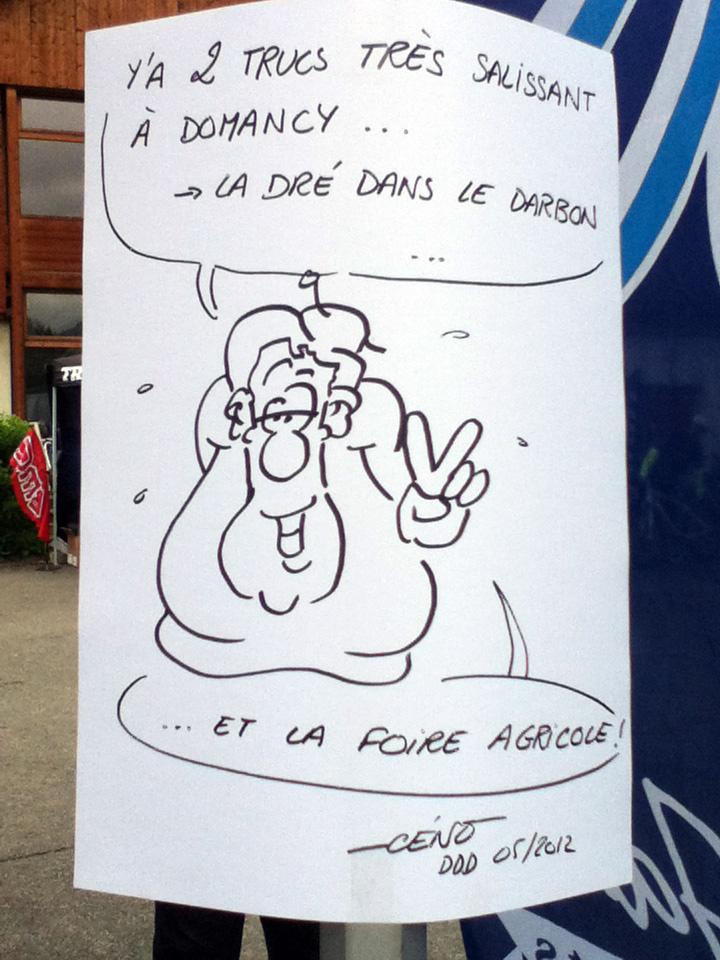 Y'A 2 TRUCS TRÈS SALISSANT
À DOMANCY ...
→ LA DRÉ DANS LE DARBON
...
... ET LA FOIRE AGRICOLE!
CÉNO
DDD 05/2012